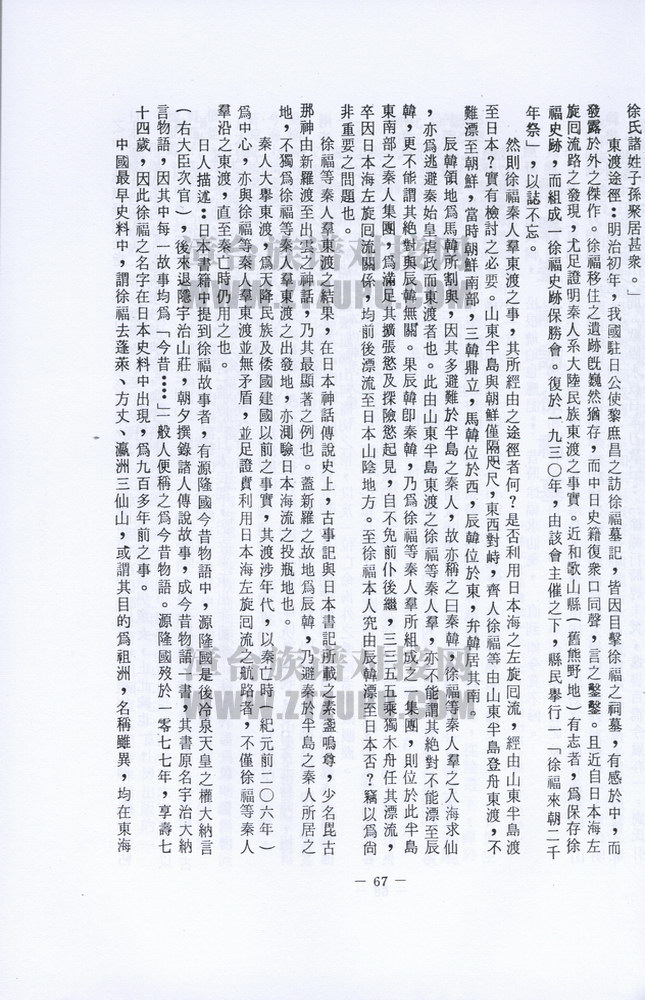 徐氏諸姓子孫聚居甚衆。」
東渡途徑：明治初年，我國駐日公使黎庶昌之訪徐福墓記，皆因目擊徐福之祠墓，有感於中，而
發露於外之傑作。徐福移住之遺跡旣巍然猶存，而中日史籍復衆口同聲，言之鑿鑿。且近自日本海左
旋囘流路之發現，尤足證明秦人系大陸民族東渡之事實。近和歌山縣（舊熊野地）有志者，爲保存徐
福史跡，而組成一徐福史跡保勝會。復於一九三〇年，由該會主催之下，縣民舉行一「徐福來朝二千
年祭」，以誌不忘。
然則徐福秦人羣東渡之事，其所經由之途徑者何？是否利用日本海之左旋囘流，經由山東半島渡
至日本？實有檢討之必要。山東半島與朝鮮僅隔咫尺，東西對峙，齊人徐福等由山東半島登舟東渡，不
難漂至朝鮮，當時朝鮮南部，三韓鼎立，馬韓位於西，辰韓位於東，弁韓居其南。
辰韓領地爲馬韓所割與，因其多避難於半島之秦人，故亦稱之曰秦韓。徐福等秦人羣之入海求仙
，亦爲逃避秦始皇虐政而東渡者也。此由山東半島東渡之徐福等秦人羣，亦不能謂其絶對不能漂至辰
韓，更不能謂其絶對與辰韓無關。果辰韓卽秦韓，乃爲徐福等秦人羣所組成之一集團，則位於此半島
東南部之秦人集團，爲滿足其擴張慾及探險慾起見，自不免前仆後繼，三三五五乘獨木舟任其漂流，
卒因日本海左旋囘流關係，均前後漂流至日本山陰地方。至徐福本人究由辰韓漂至日本否？竊以爲尙
非重要之問題也。
徐福等秦人羣東渡之結果，在日本神話傳說史上，古事記與日本書記所載之素盞鳴尊，少名毘古
那神由新羅渡至出雲之神話，乃其最顯著之例也。蓋新羅之故地爲辰韓，乃避秦於半島之秦人所居之
地，不獨爲徐福等秦人羣東渡之出發地，亦測驗日本海流之投瓶地也。
秦人大舉東渡，爲天降民族及倭國建國以前之事實，其渡涉年代，以秦亡時（紀元前二〇六年）
爲中心，亦與徐福等秦人羣東渡並無矛盾，並足證實利用日本海左旋囘流之航路者，不僅徐福等秦人
羣沿之東渡，直至秦亡時仍用之也。
日人描述：日本書籍中提到徐福故事者，有源隆國今昔物語中，源隆國是後冷泉天皇之權大納言
（右大臣次官），後來退隱宇治山莊，朝夕撰錄諸人傳說故事，成今昔物語一書，其書原名宇治大納
言物語，因其中每一故事均爲「今昔⋯⋯」一般人便稱之爲今昔物語。源隆國歿於一零七七年，享壽七
十四歲，因此徐福之名字在日本史料中出現，爲九百多年前之事。
中國最早史料中，謂徐福去蓬萊、方丈、瀛洲三仙山，或謂其目的爲祖洲，名稱雖異，均在東海
— 67 —
漳台族谱对接网
WWW.ZTZUPU.COM
漳台族谱对接网
WWW.ZTZUPU.COM